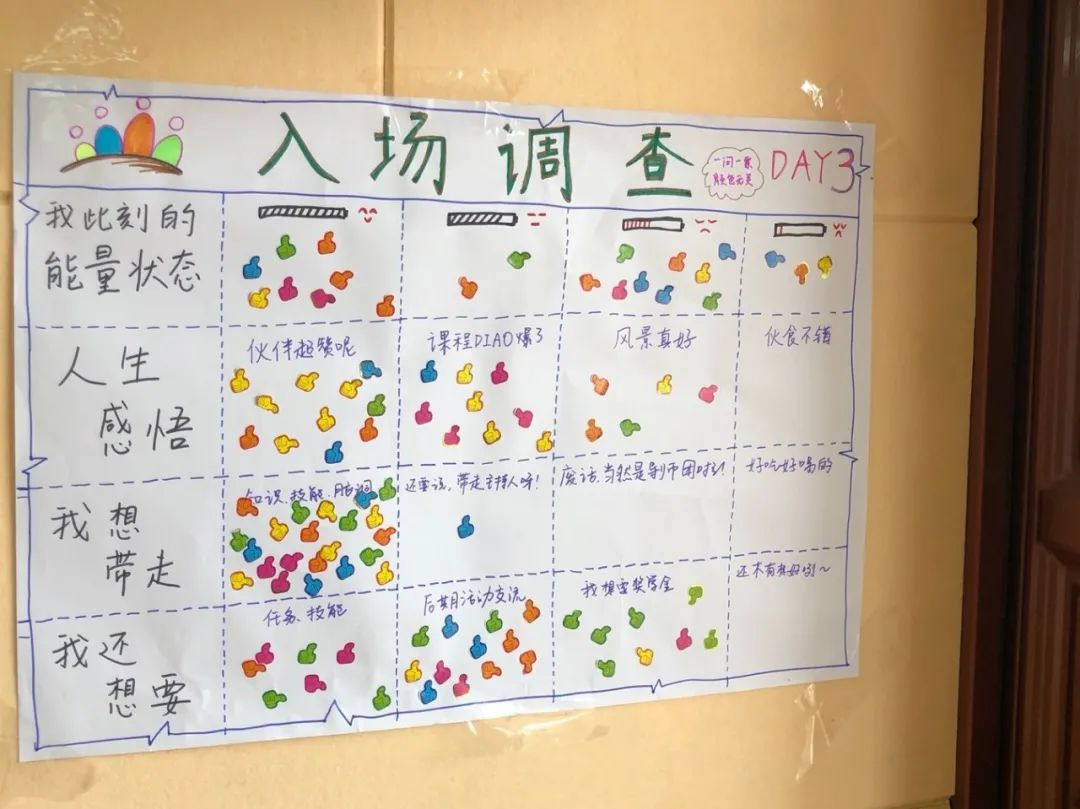 入场调查
一问一票
颜色无关
DAY3
我此刻的
能量状态
人生
感悟
伙伴超赞呢
课程DIAO爆了
风景真好
伙食不错
我想
带走
知识、技能、
还要说，带走主持人呀!
废话，当然是导师团啦!
好吃好喝的
我还
想要
任务、技能
后期活动交流
我想要奖学金